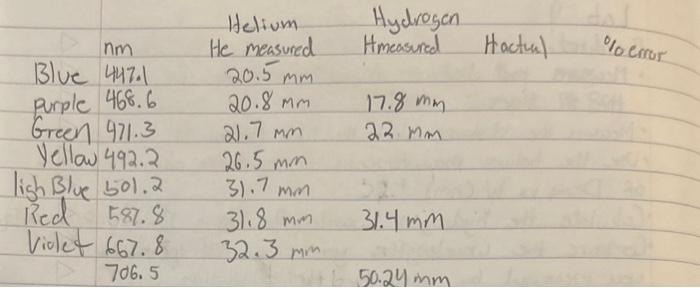 Helium Hydrogen
nm He measured Hmeasured Hactual % error
Blue 447.1 20.5 mm
purple 468.6 20.8 mm 17.8 mm
Green 471.3 21.7 mm 22 mm
Yellow 492.2 26.5 mm
lighBlue 501.2 31.7 mm
Red 587.8 31.8 mm 31.4 mm
Violet 667.8 32.3 mm
706.5 50.24 mm